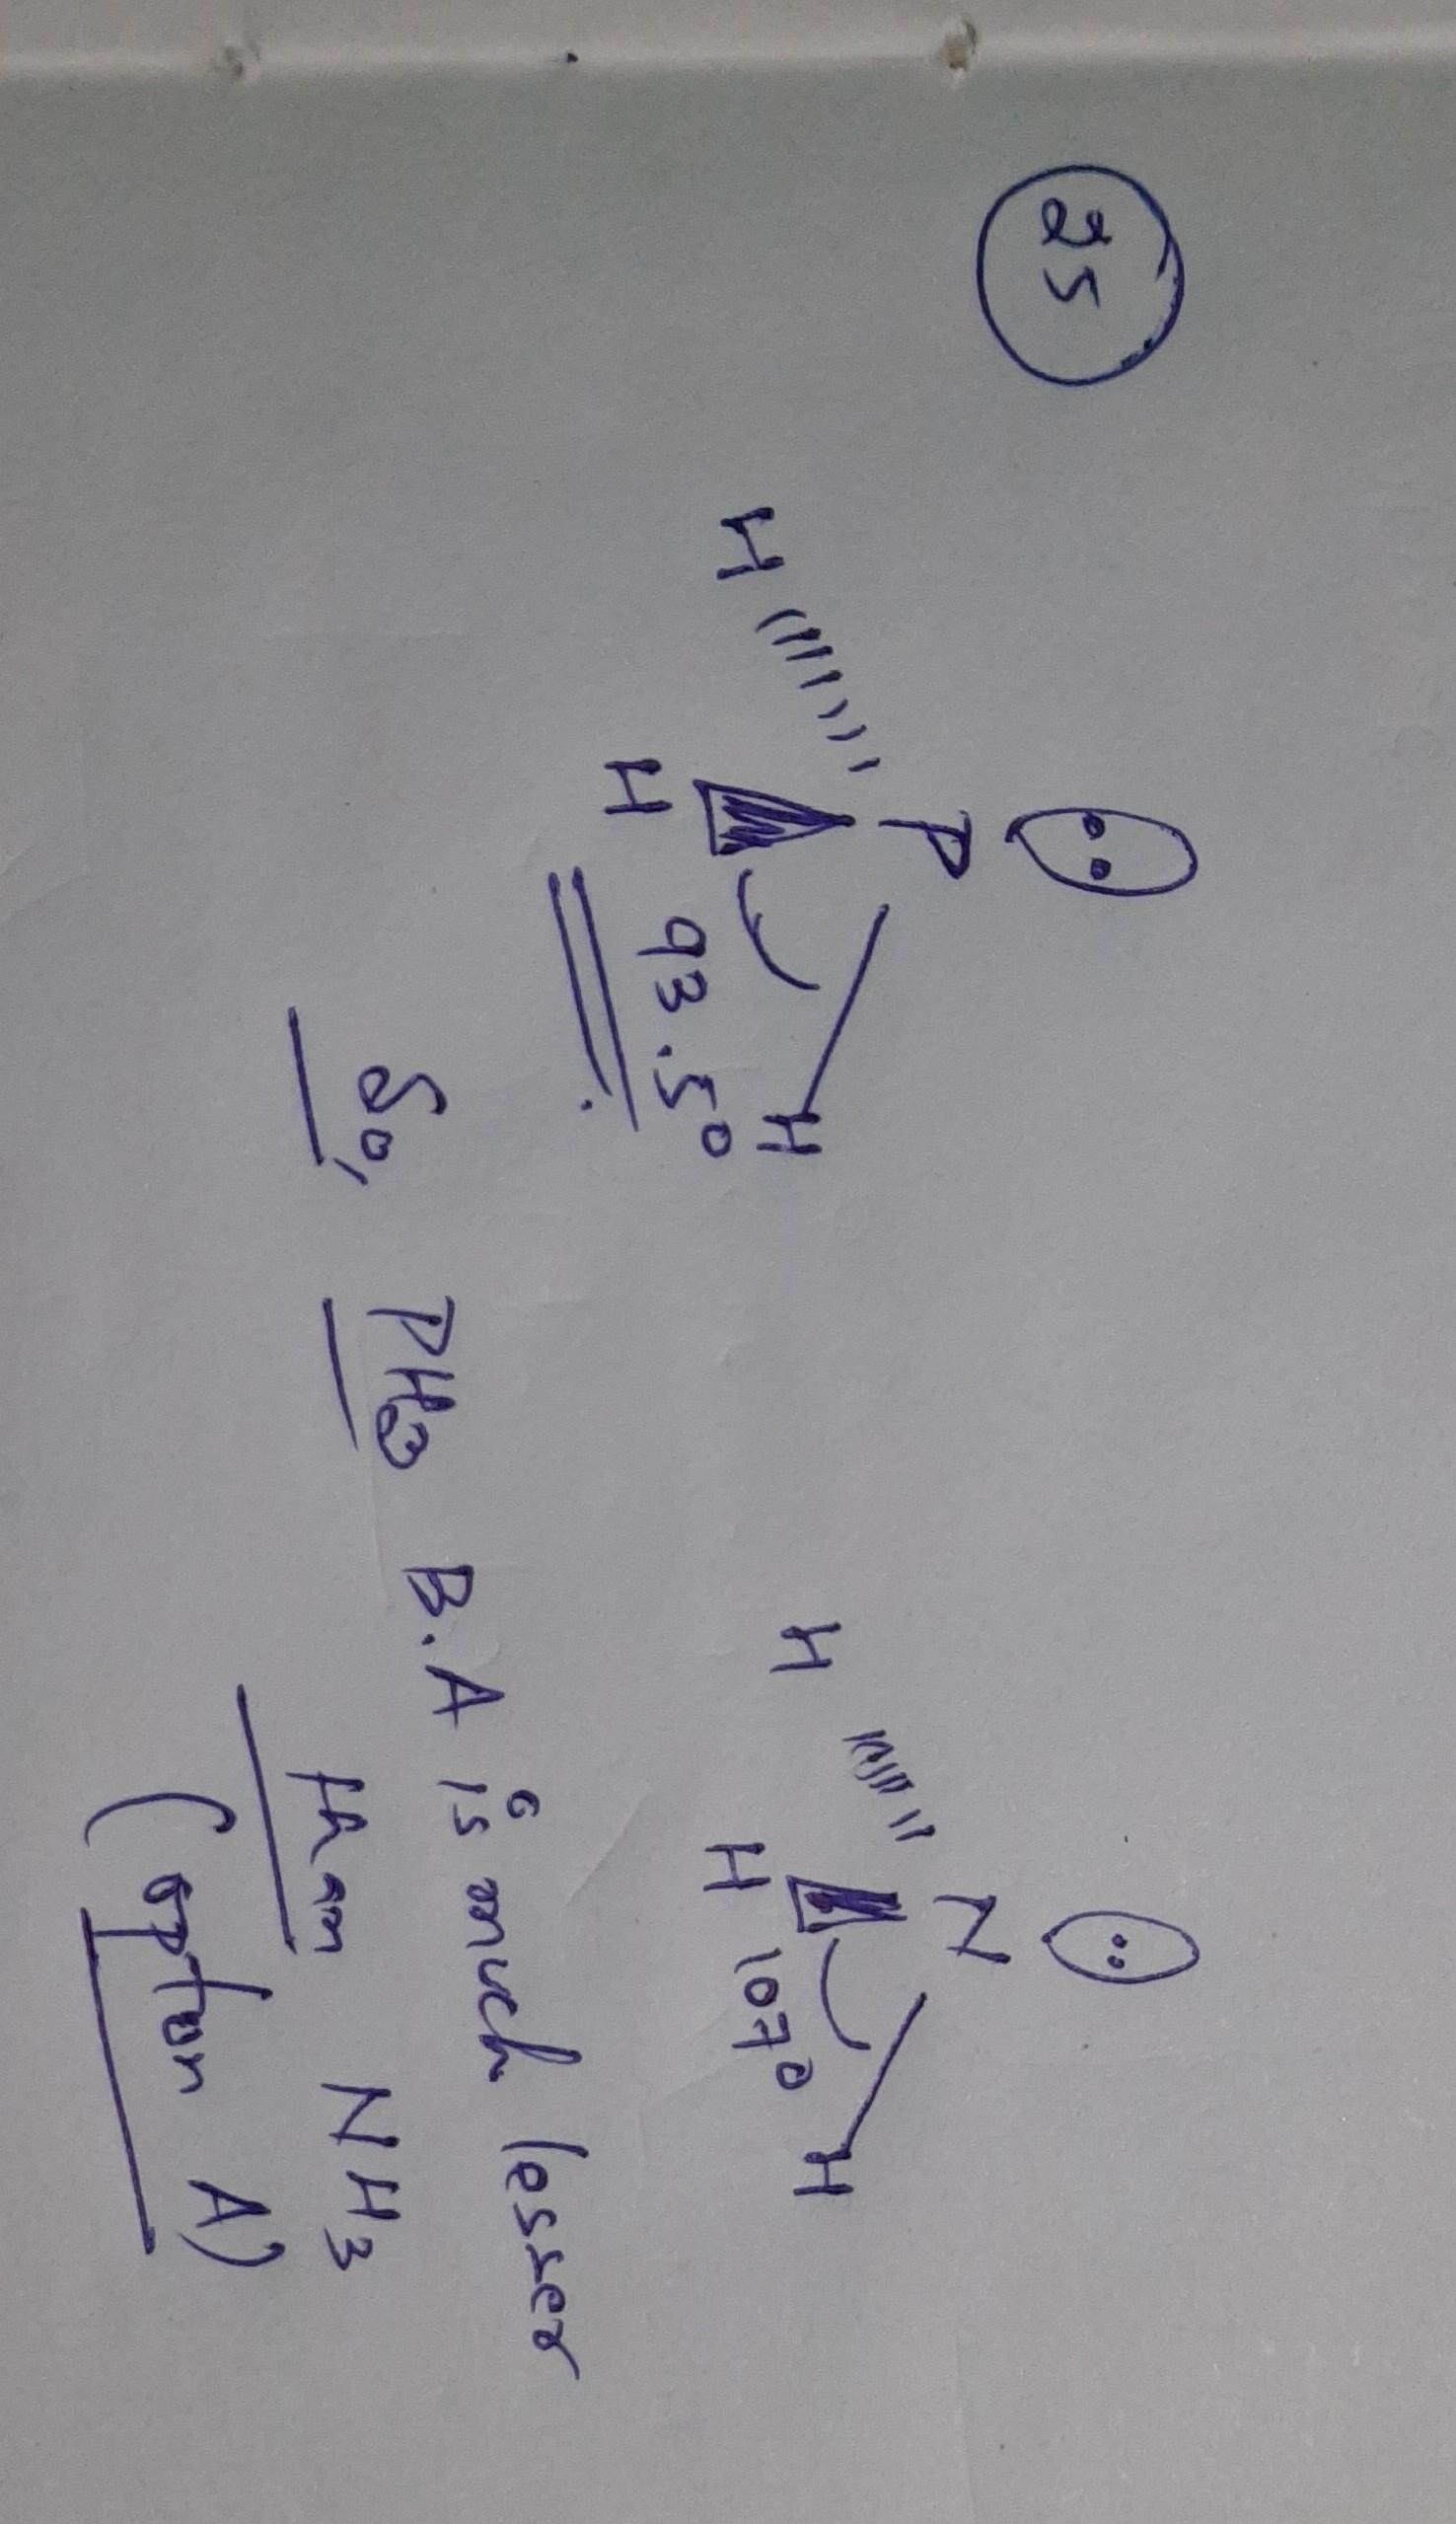 25
P
N
H
H
H
H
H
H
93.5°
107°
So, PH3 B.A is much lesser
than NH3
(option A)